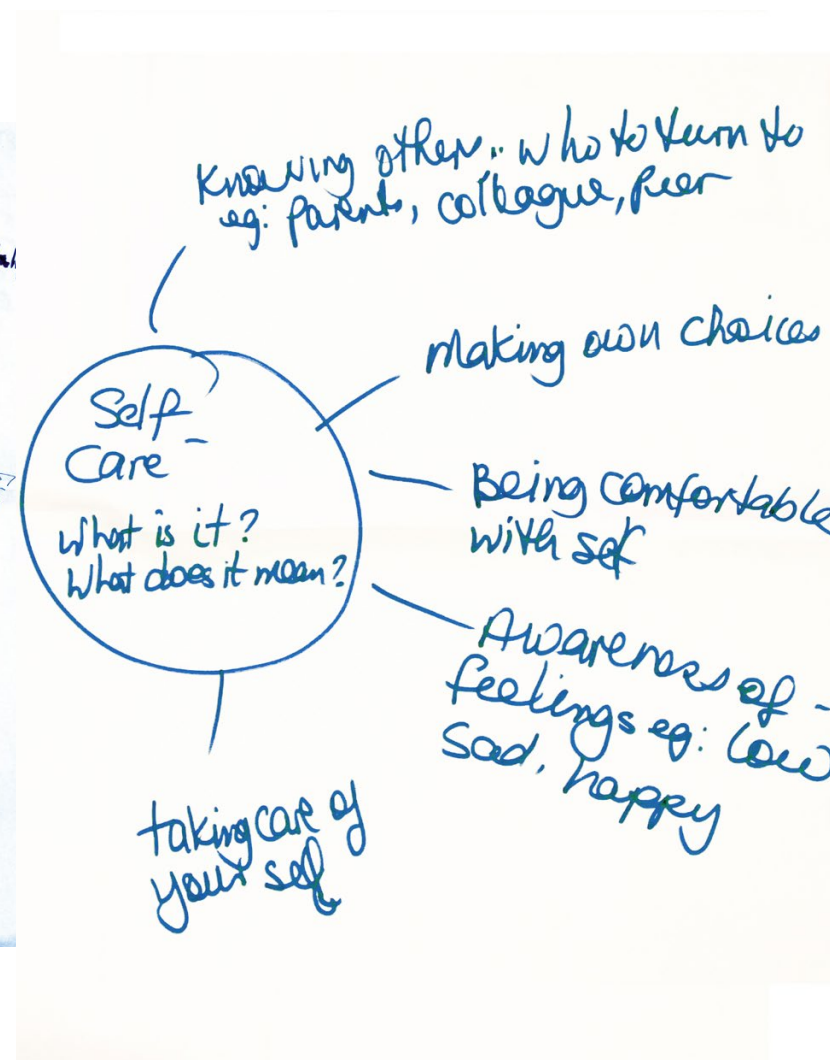 Knowing others.. who to turn to
eg: parents, colleague, peer
Making own choices
Self
Care
What is it?
What does it mean?
Being comfortable
with self
Awareness of -
feelings eg: low
sad, happy
taking care of
your self